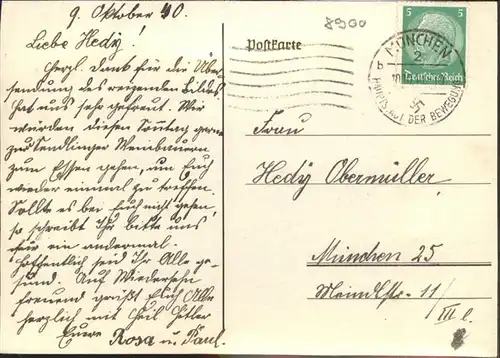 9. Oktober 40.
Liebe Hedy!
Herzl. Dank für die Über-
sendung des reizenden Bildes
hat uns sehr gefreut. Wir
würden diesen Sonntag gerne
zur Sendlinger Weinbauern
zum Essen gehen, um Euch
wieder einmal zu treffen.
Sollte es bei Euch nicht gehen,
so schreibt Ihr bitte uns
für ein andermal.
Hoffentlich seid Ihr Alle ge-
sund. Auf Wiedersehn
freuend grüßt Euch Alle
herzlich mit Heil Hitler
Eure Rosa u. Paul.
8900
Postkarte
5 5
Deutsches Reich
MÜNCHEN
2
b
10
HAUPTSTADT DER BEWEGUNG
Frau
Hedy Obermüller,
München 25
Meindlstr. 11/
III l.